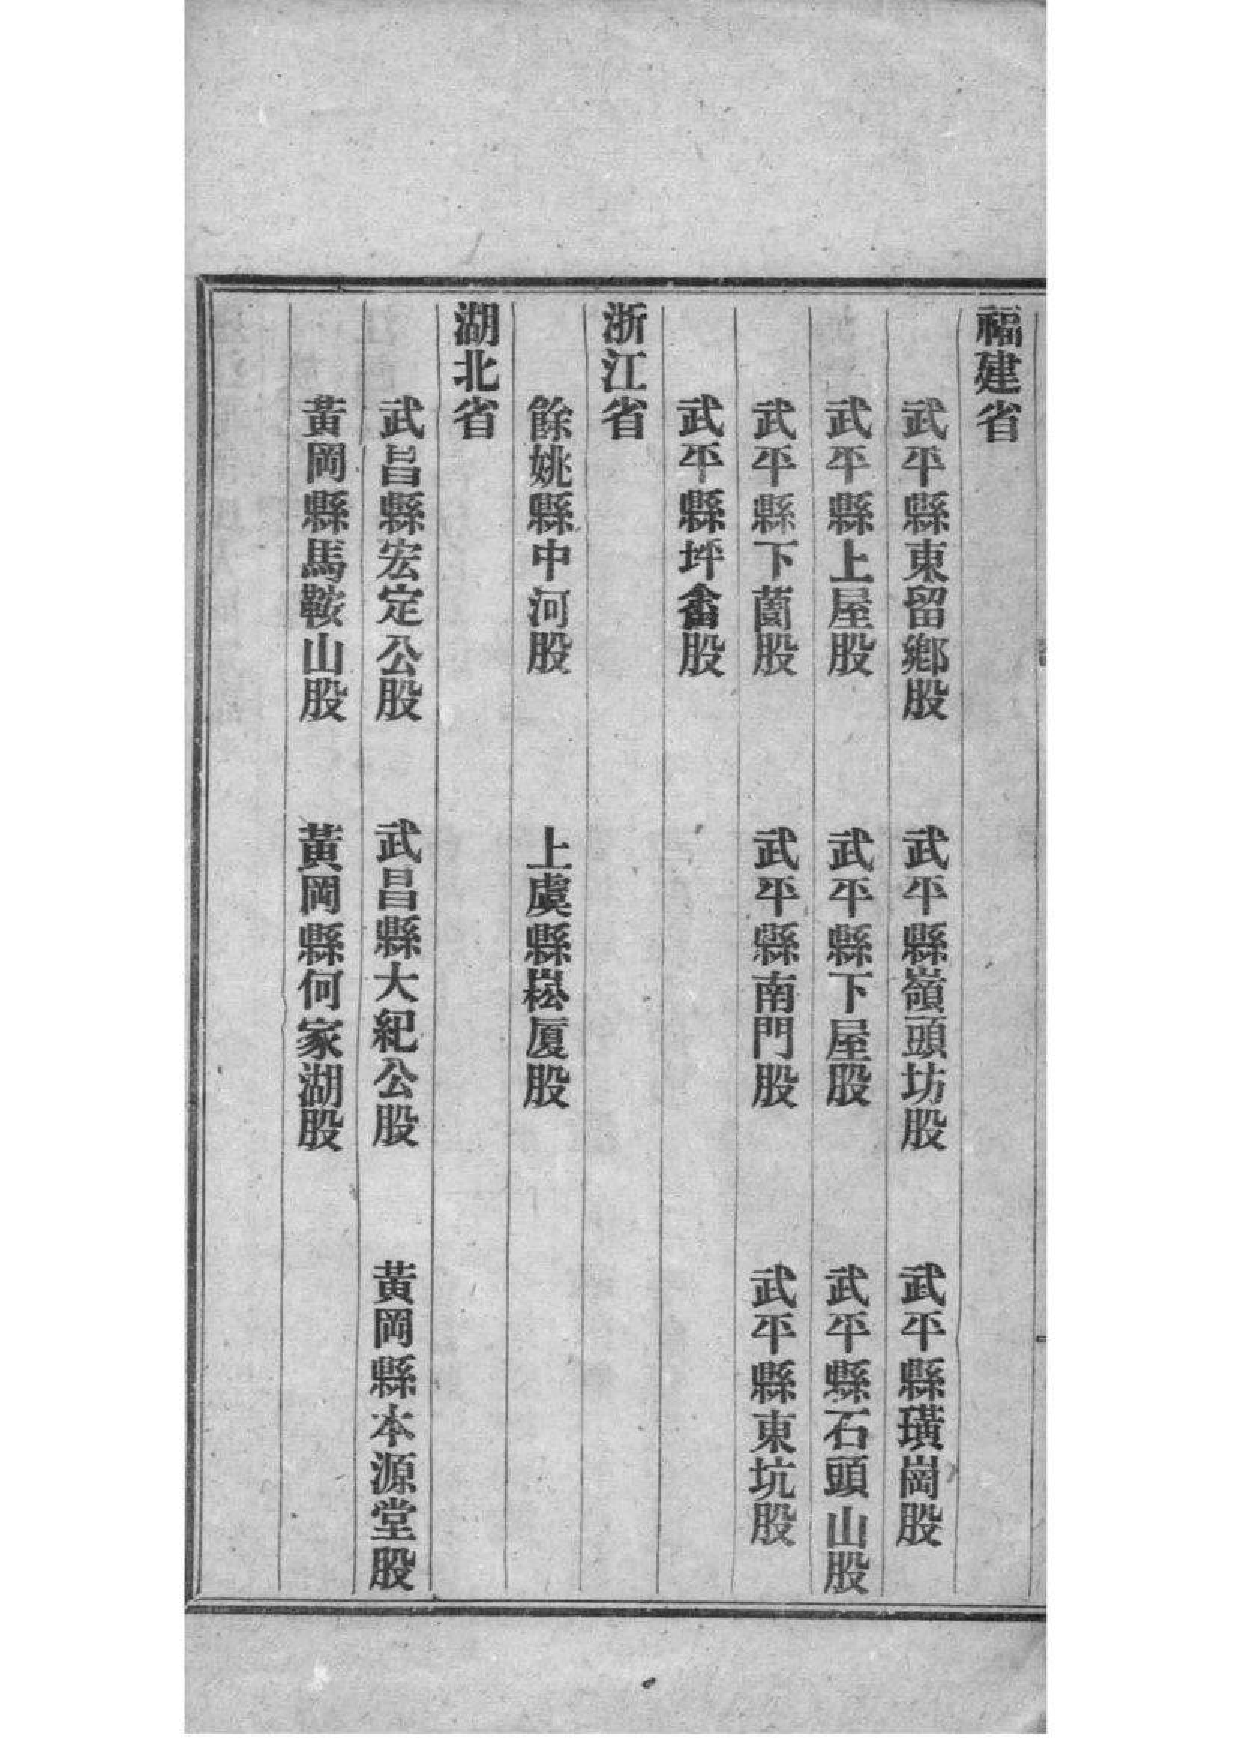 福建省
武平縣東留鄉股　武平縣嶺頭坊股　武平縣璜崗股
武平縣上屋股　武平縣下屋股　武平縣石頭山股
武平縣下薗股　武平縣南門股　武平縣東坑股
武平縣坪畲股
浙江省
餘姚縣中河股　上虞縣崧厦股
湖北省
武昌縣宏定公股　武昌縣大紀公股　黃岡縣本源堂股
黃岡縣馬鞍山股　黃岡縣何家湖股